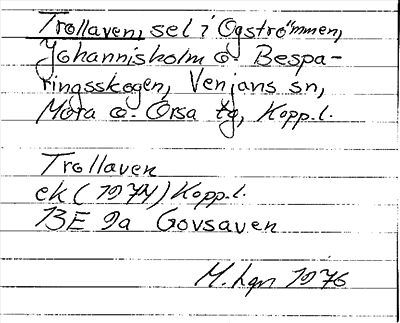 Trollaven, sel i Ogströmmen,
Johannisholm o. Bespa-
ringsskogen, Venjans sn,
Mora o. Orsa tg, Kopp.l.
Trollaven
ek (1974) Kopp.l.
13E 9a Govsaven
M. Lgn 1976